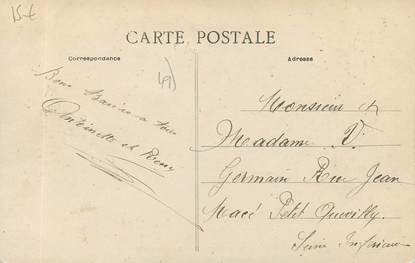 15 €
CARTE POSTALE
Correspondance
Adresse
49)
Bons Baisers à tous
Antoinette et
Monsieur et
Madame V.
Germain Rue Jean
Macé Petit Quevilly
Seine Inférieure